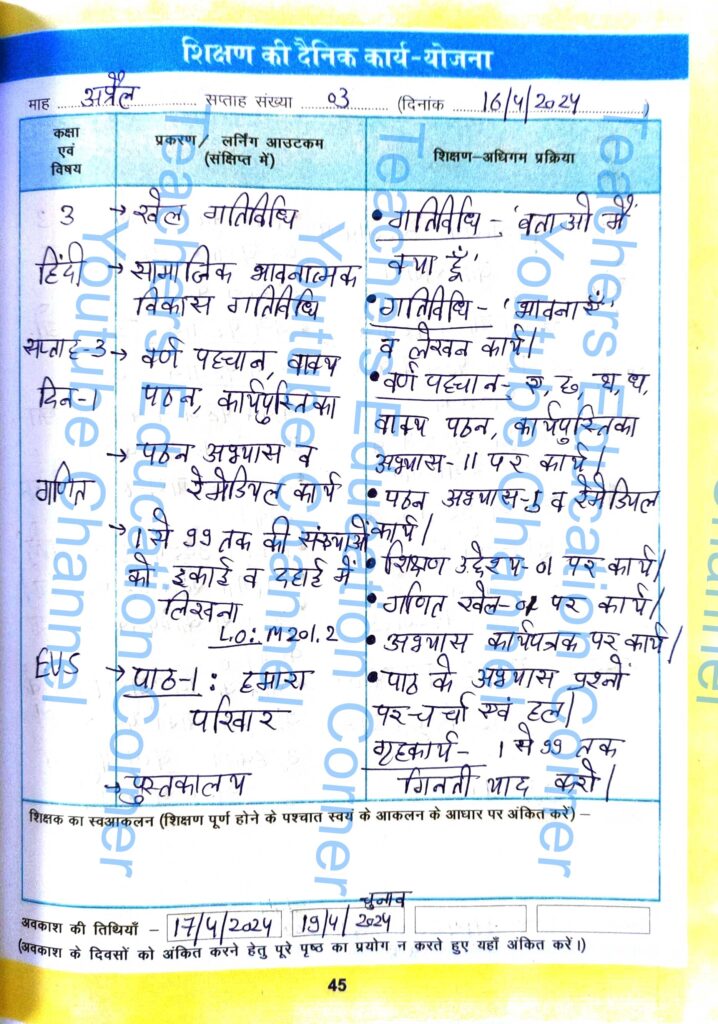 शिक्षण की दैनिक कार्य-योजना
माह अप्रैल सप्ताह संख्या 03 (दिनांक 16/4/2024)
कक्षा एवं विषय
प्रकरण/ लर्निंग आउटकम (संक्षिप्त में)
शिक्षण-अधिगम प्रक्रिया
3
हिंदी
सप्ताह-3
दिन-1
गणित
EVS
→ खेल गतिविधि
→ सामाजिक भावनात्मक
विकास गतिविधि
→ वर्ण पहचान, वाक्य
पठन, कार्यपुस्तिका
→ पठन अभ्यास व
रेमेडियल कार्य
→ 1 से 99 तक की संख्याओं
को इकाई व दहाई में
लिखना
LO: M201.2
→ पाठ-1: हमारा
परिवार
→ पुस्तकालय
• गतिविधि - 'बताओ मैं
क्या हूँ'
• गतिविधि - 'भावनाएँ'
व लेखन कार्य।
• वर्ण पहचान-
वाक्य पठन, कार्यपुस्तिका
अभ्यास-11 पर कार्य।
• पठन अभ्यास-1 व रेमेडियल
कार्य।
• शिक्षण उद्देश्य-01 पर कार्य।
• गणित खेल-01 पर कार्य।
• अभ्यास कार्यपत्रक पर कार्य।
• पाठ के अभ्यास प्रश्नों
पर चर्चा एवं हल।
गृहकार्य- 1 से 99 तक
गिनती याद करो।
शिक्षक का स्वआकलन (शिक्षण पूर्ण होने के पश्चात स्वयं के आकलन के आधार पर अंकित करें) –
चुनाव
अवकाश की तिथियाँ – 17/4/2024 19/4/2024
(अवकाश के दिवसों को अंकित करने हेतु पूरे पृष्ठ का प्रयोग न करते हुए यहाँ अंकित करें।)
45
Teachers Education Corner
Youtube Channel
Teachers Education Corner
Youtube Channel
Teachers Education Corner
Youtube Channel